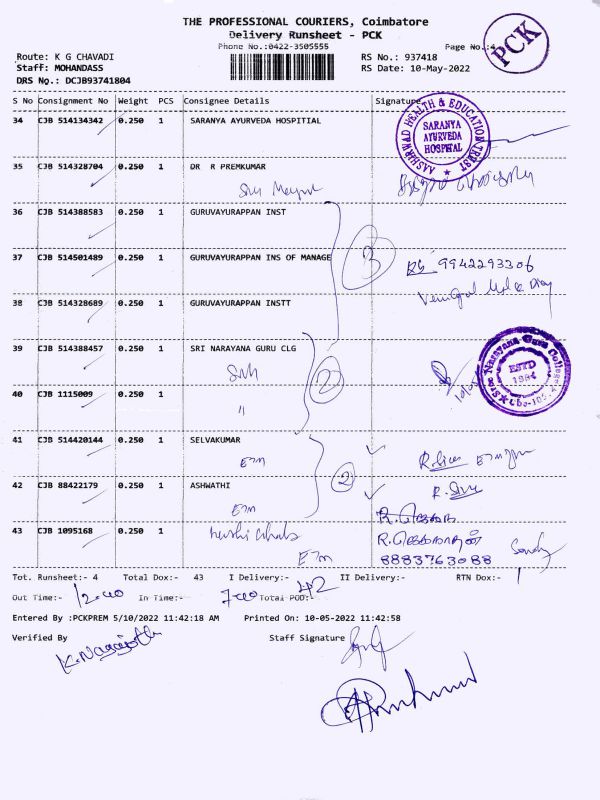 THE PROFESSIONAL COURIERS, Coimbatore
Delivery Runsheet - PCK
Phone No.:0422-3505555
Page No.:4
PCK
Route: K G CHAVADI
Staff: MOHANDASS
DRS No.: DCJB93741804
RS No.: 937418
RS Date: 10-May-2022
S No Consignment No Weight PCS Consignee Details Signature
34 CJB 514134342 0.250 1 SARANYA AYURVEDA HOSPITIAL
AASHIRWAD HEALTH & EDUCATION TRUST
SARANYA AYURVEDA HOSPITAL
35 CJB 514328704 0.250 1 DR R PREMKUMAR
36 CJB 514388583 0.250 1 GURUVAYURAPPAN INST
3
37 CJB 514501489 0.250 1 GURUVAYURAPPAN INS OF MANAGE
9942293306
38 CJB 514328689 0.250 1 GURUVAYURAPPAN INSTT
39 CJB 514388457 0.250 1 SRI NARAYANA GURU CLG
2
Sree Narayana Guru College
ESTD 1984
Cbe-105.
40 CJB 1115009 0.250 1
"
41 CJB 514420144 0.250 1 SELVAKUMAR
2
42 CJB 88422179 0.250 1 ASHWATHI
43 CJB 1095168 0.250 1
8883763088
Tot. Runsheet:- 4 Total Dox:- 43 I Delivery:- II Delivery:- RTN Dox:- 1
Out Time:- 12.00 In Time:- 7.00 Total POD:- 42
Entered By :PCKPREM 5/10/2022 11:42:18 AM Printed On: 10-05-2022 11:42:58
Verified By Staff Signature